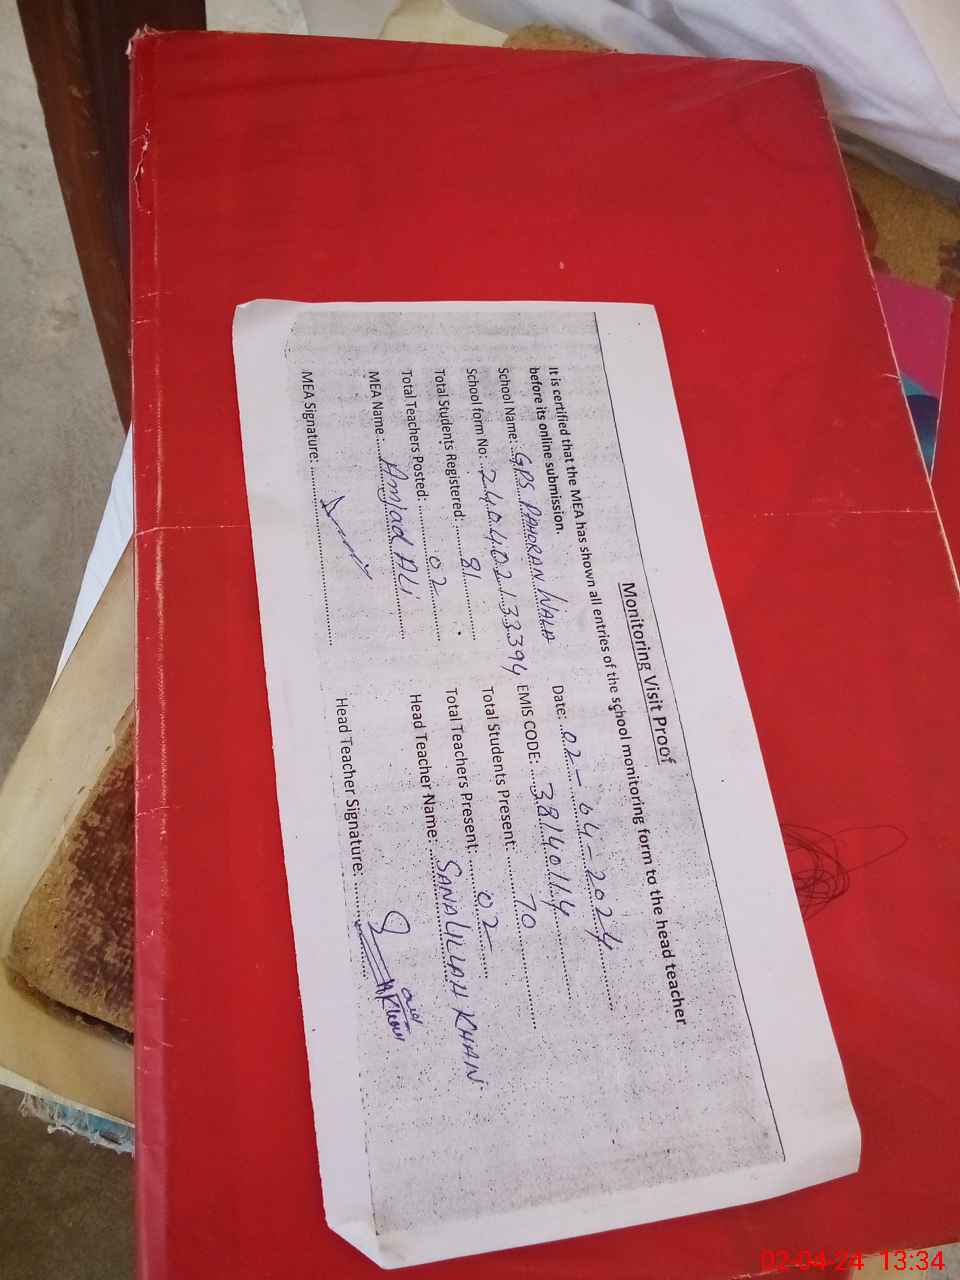 Monitoring Visit Proof
It is certified that the MEA has shown all entries of the school monitoring form to the head teacher
before its online submission.
School Name: GPS PAHORAN WALA Date: 02-04-2024
School form No: 240402133394 EMIS CODE: 38140114
Total Students Registered: 81 Total Students Present: 70
Total Teachers Posted: 02 Total Teachers Present: 02
MEA Name: Amjad ALi Head Teacher Name: SANAULLAH KHAN
MEA Signature: Head Teacher Signature:
02-04-24 13:34